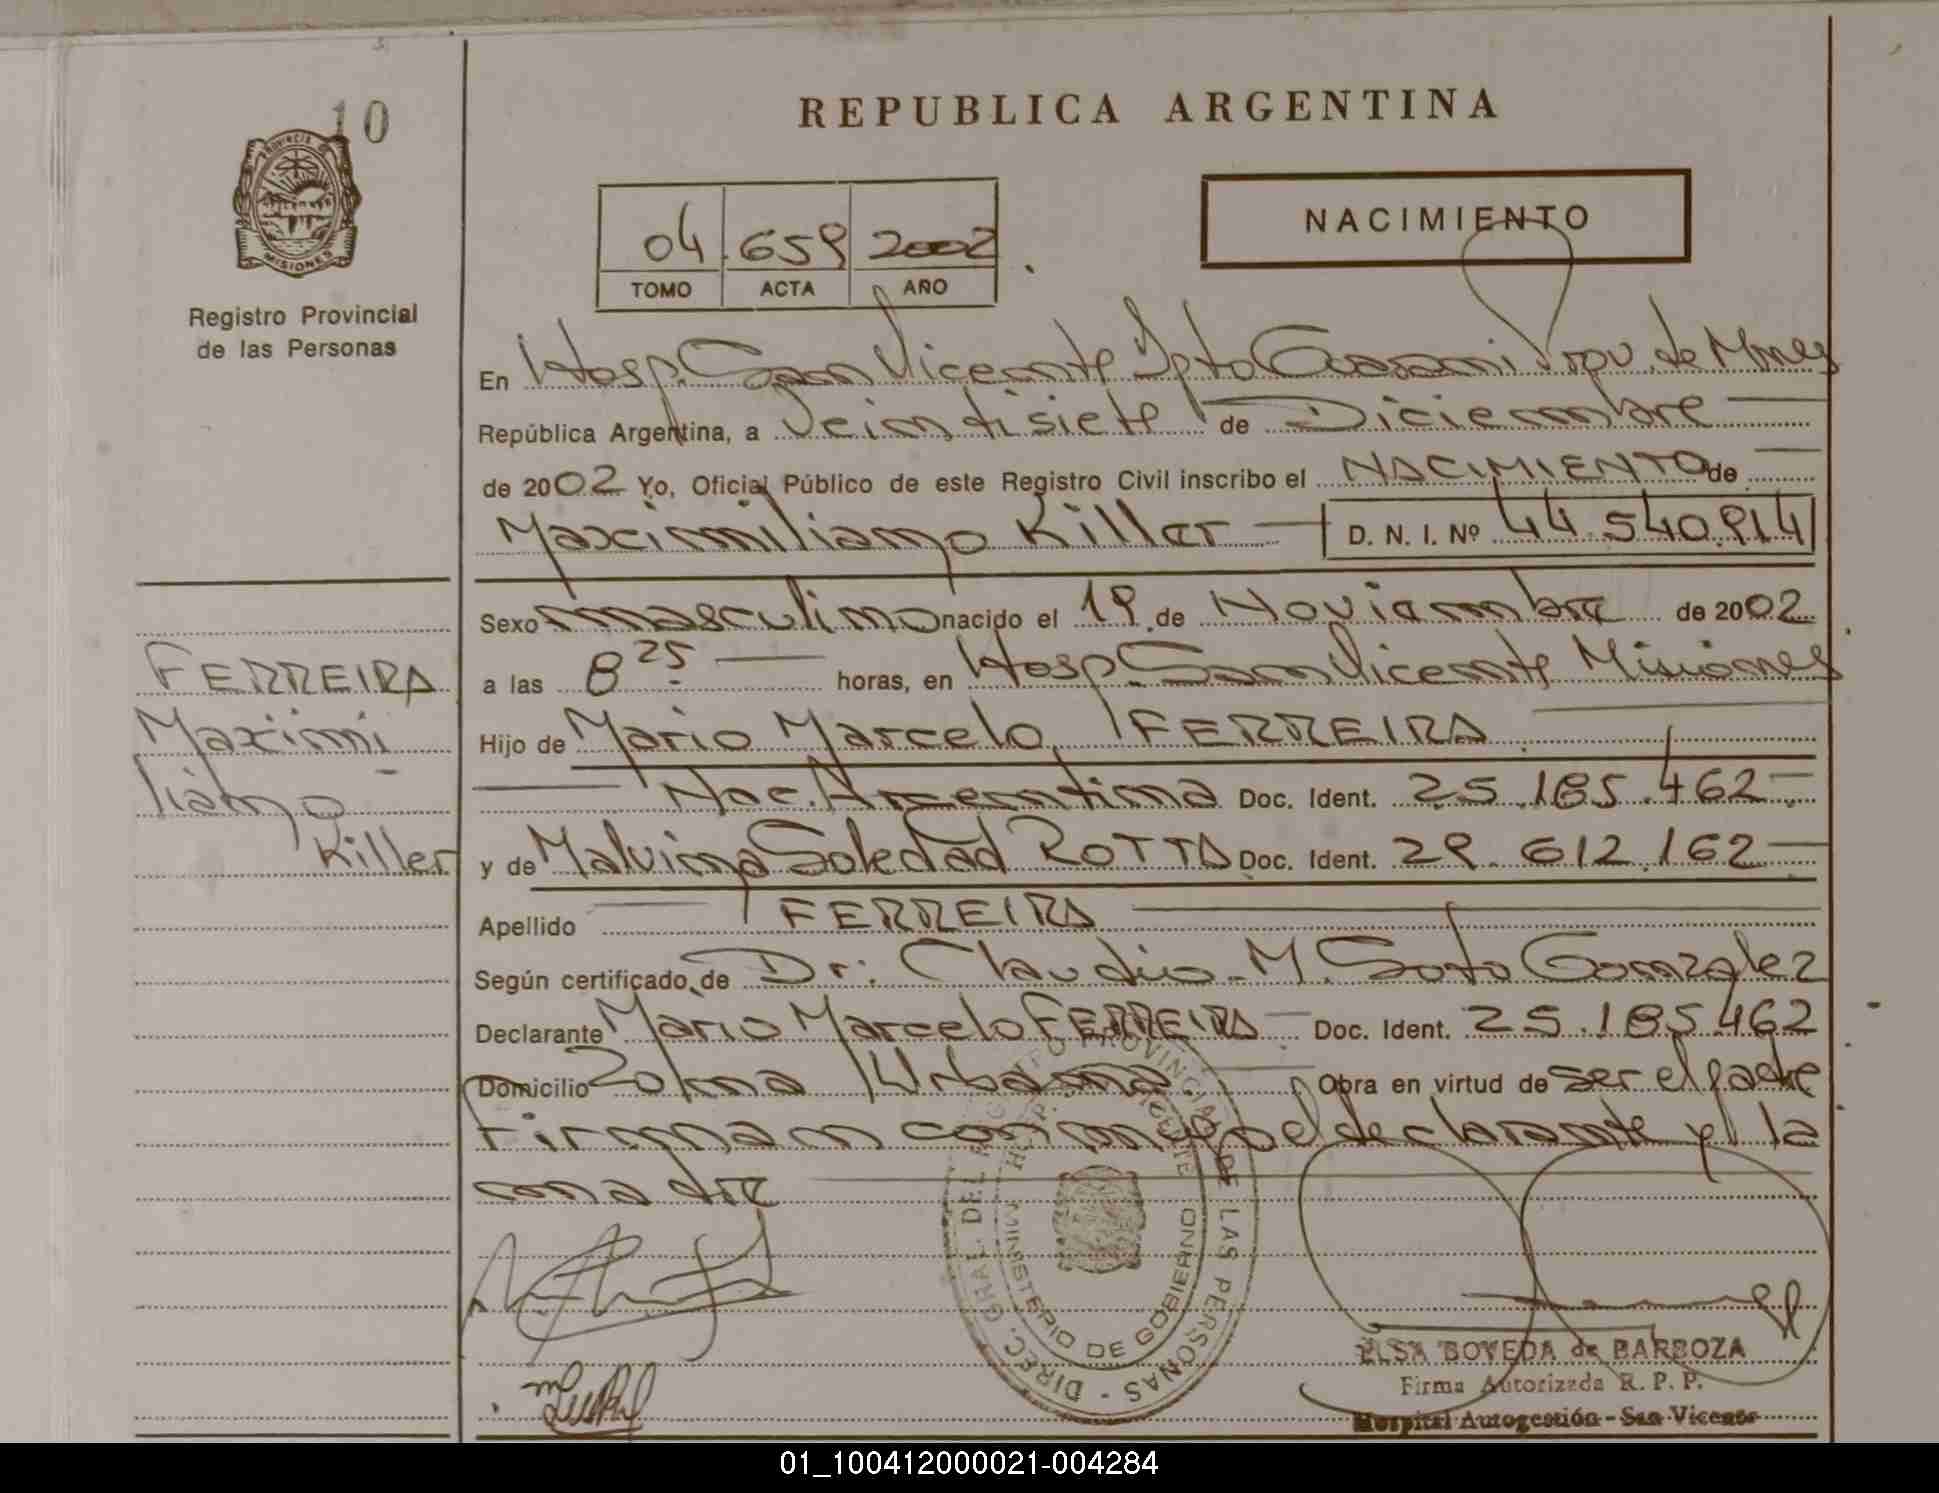 10
PROVINCIA DE
MISIONES
Registro Provincial
de las Personas
REPUBLICA ARGENTINA
04 659 2002
TOMO ACTA AÑO
NACIMIENTO
En Hosp. San Vicente Dpto Guaraní Prov. de Mnes
República Argentina, a Veintisiete de Diciembre
de 2002 Yo, Oficial Público de este Registro Civil inscribo el NACIMIENTO de
Maximiliano Killer D. N. I. Nº 44.540.914
Sexo masculino nacido el 19 de Noviembre de 2002
a las 8 25 horas, en Hosp. San Vicente Misiones
Hijo de Mario Marcelo FERREIRA
Nac. Argentina Doc. Ident. 25.185.462
y de Malvina Soledad ROTTA Doc. Ident. 29.612.162
Apellido FERREIRA
Según certificado de Dr. Claudio M. Soto Gonzalez
Declarante Mario Marcelo FERREIRA Doc. Ident. 25.185.462
Domicilio Zona Urbana Obra en virtud de ser el padre
Firman conmigo el declarante y la
madre
FERREIRA
Maximi
liano
Killer
DIREC. GRAL. DEL REGISTRO PROVINCIAL DE LAS PERSONAS
MINISTERIO DE GOBIERNO
ELSA BOVEDA de BARBOZA
Firma Autorizada R. P. P.
Hospital Autogestión - San Vicente
01_100412000021-004284